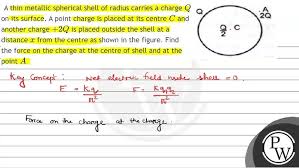 A thin metallic spherical shell of radius carries a charge Q
on its surface. A point charge is placed at its centre C and
another charge +2Q is placed outside the shell at a
distance x from the centre as shown in the figure. Find
the force on the charge at the centre of shell and at the
point A.
Q
A
2Q
Q/2 . C
Key Concept : Net electric field inside shell = 0.
F = Kq/r² F = Kq1q2/r²
Force on the charge at the charge.
P
W